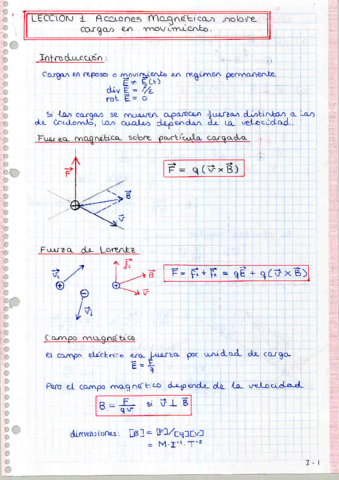 LECCION 1 Acciones Magnéticas sobre
cargas en movimiento.
Introducción:
Cargas en reposo o movimiento en regimen permanente
E⃗ ≠ E⃗(t)
div E⃗ = ρ/ε
rot E⃗ = 0
Si las cargas se mueven aparecen fuerzas distintas a las
de Coulomb, las cuales dependen de la velocidad.
Fuerza magnética sobre partícula cargada
F⃗
F⃗ = q(v⃗ × B⃗)
B⃗
v⃗
Fuerza de Lorentz
B⃗
v⃗
F⃗ = F⃗e + F⃗m = qE⃗ + q(v⃗ × B⃗)
Campo magnético
El campo eléctrico era fuerza por unidad de carga
E⃗ = F⃗/q
Pero el campo magnético depende de la velocidad
B = F/qv si v⃗ ⊥ B⃗
dimensiones: [B] = [F]/[q][v]
= M·I⁻¹·T⁻²
I-1